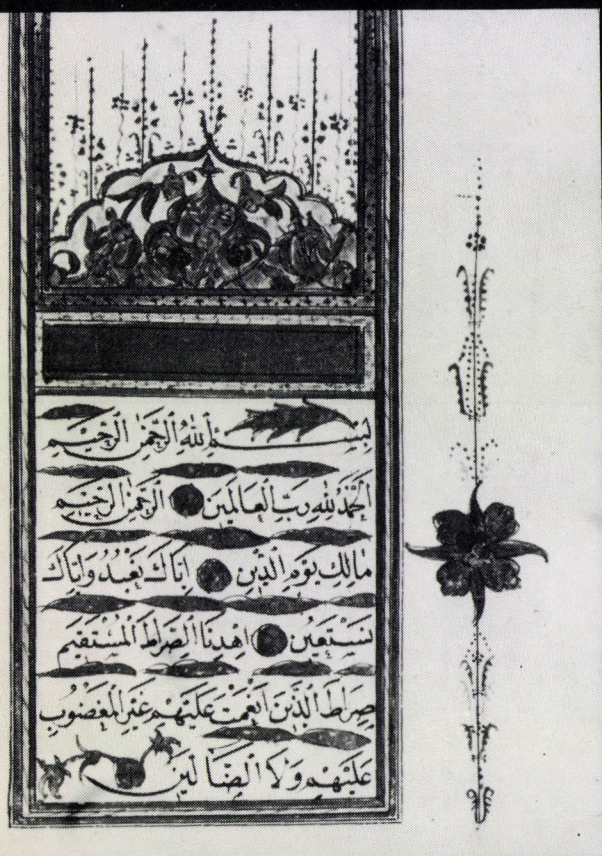 بِسْمِ اللهِ الرَّحْمٰنِ الرَّحِيْمِ
اَلْحَمْدُ لِلّٰهِ رَبِّ الْعَالَمِيْنَ الرَّحْمٰنِ الرَّحِيْمِ
مَالِكِ يَوْمِ الدِّيْنِ اِيَّاكَ نَعْبُدُ وَاِيَّاكَ
نَسْتَعِيْنُ اِهْدِنَا الصِّرَاطَ الْمُسْتَقِيْمَ
صِرَاطَ الَّذِيْنَ اَنْعَمْتَ عَلَيْهِمْ غَيْرِ الْمَغْضُوْبِ
عَلَيْهِمْ وَلَا الضَّالِّيْنَ